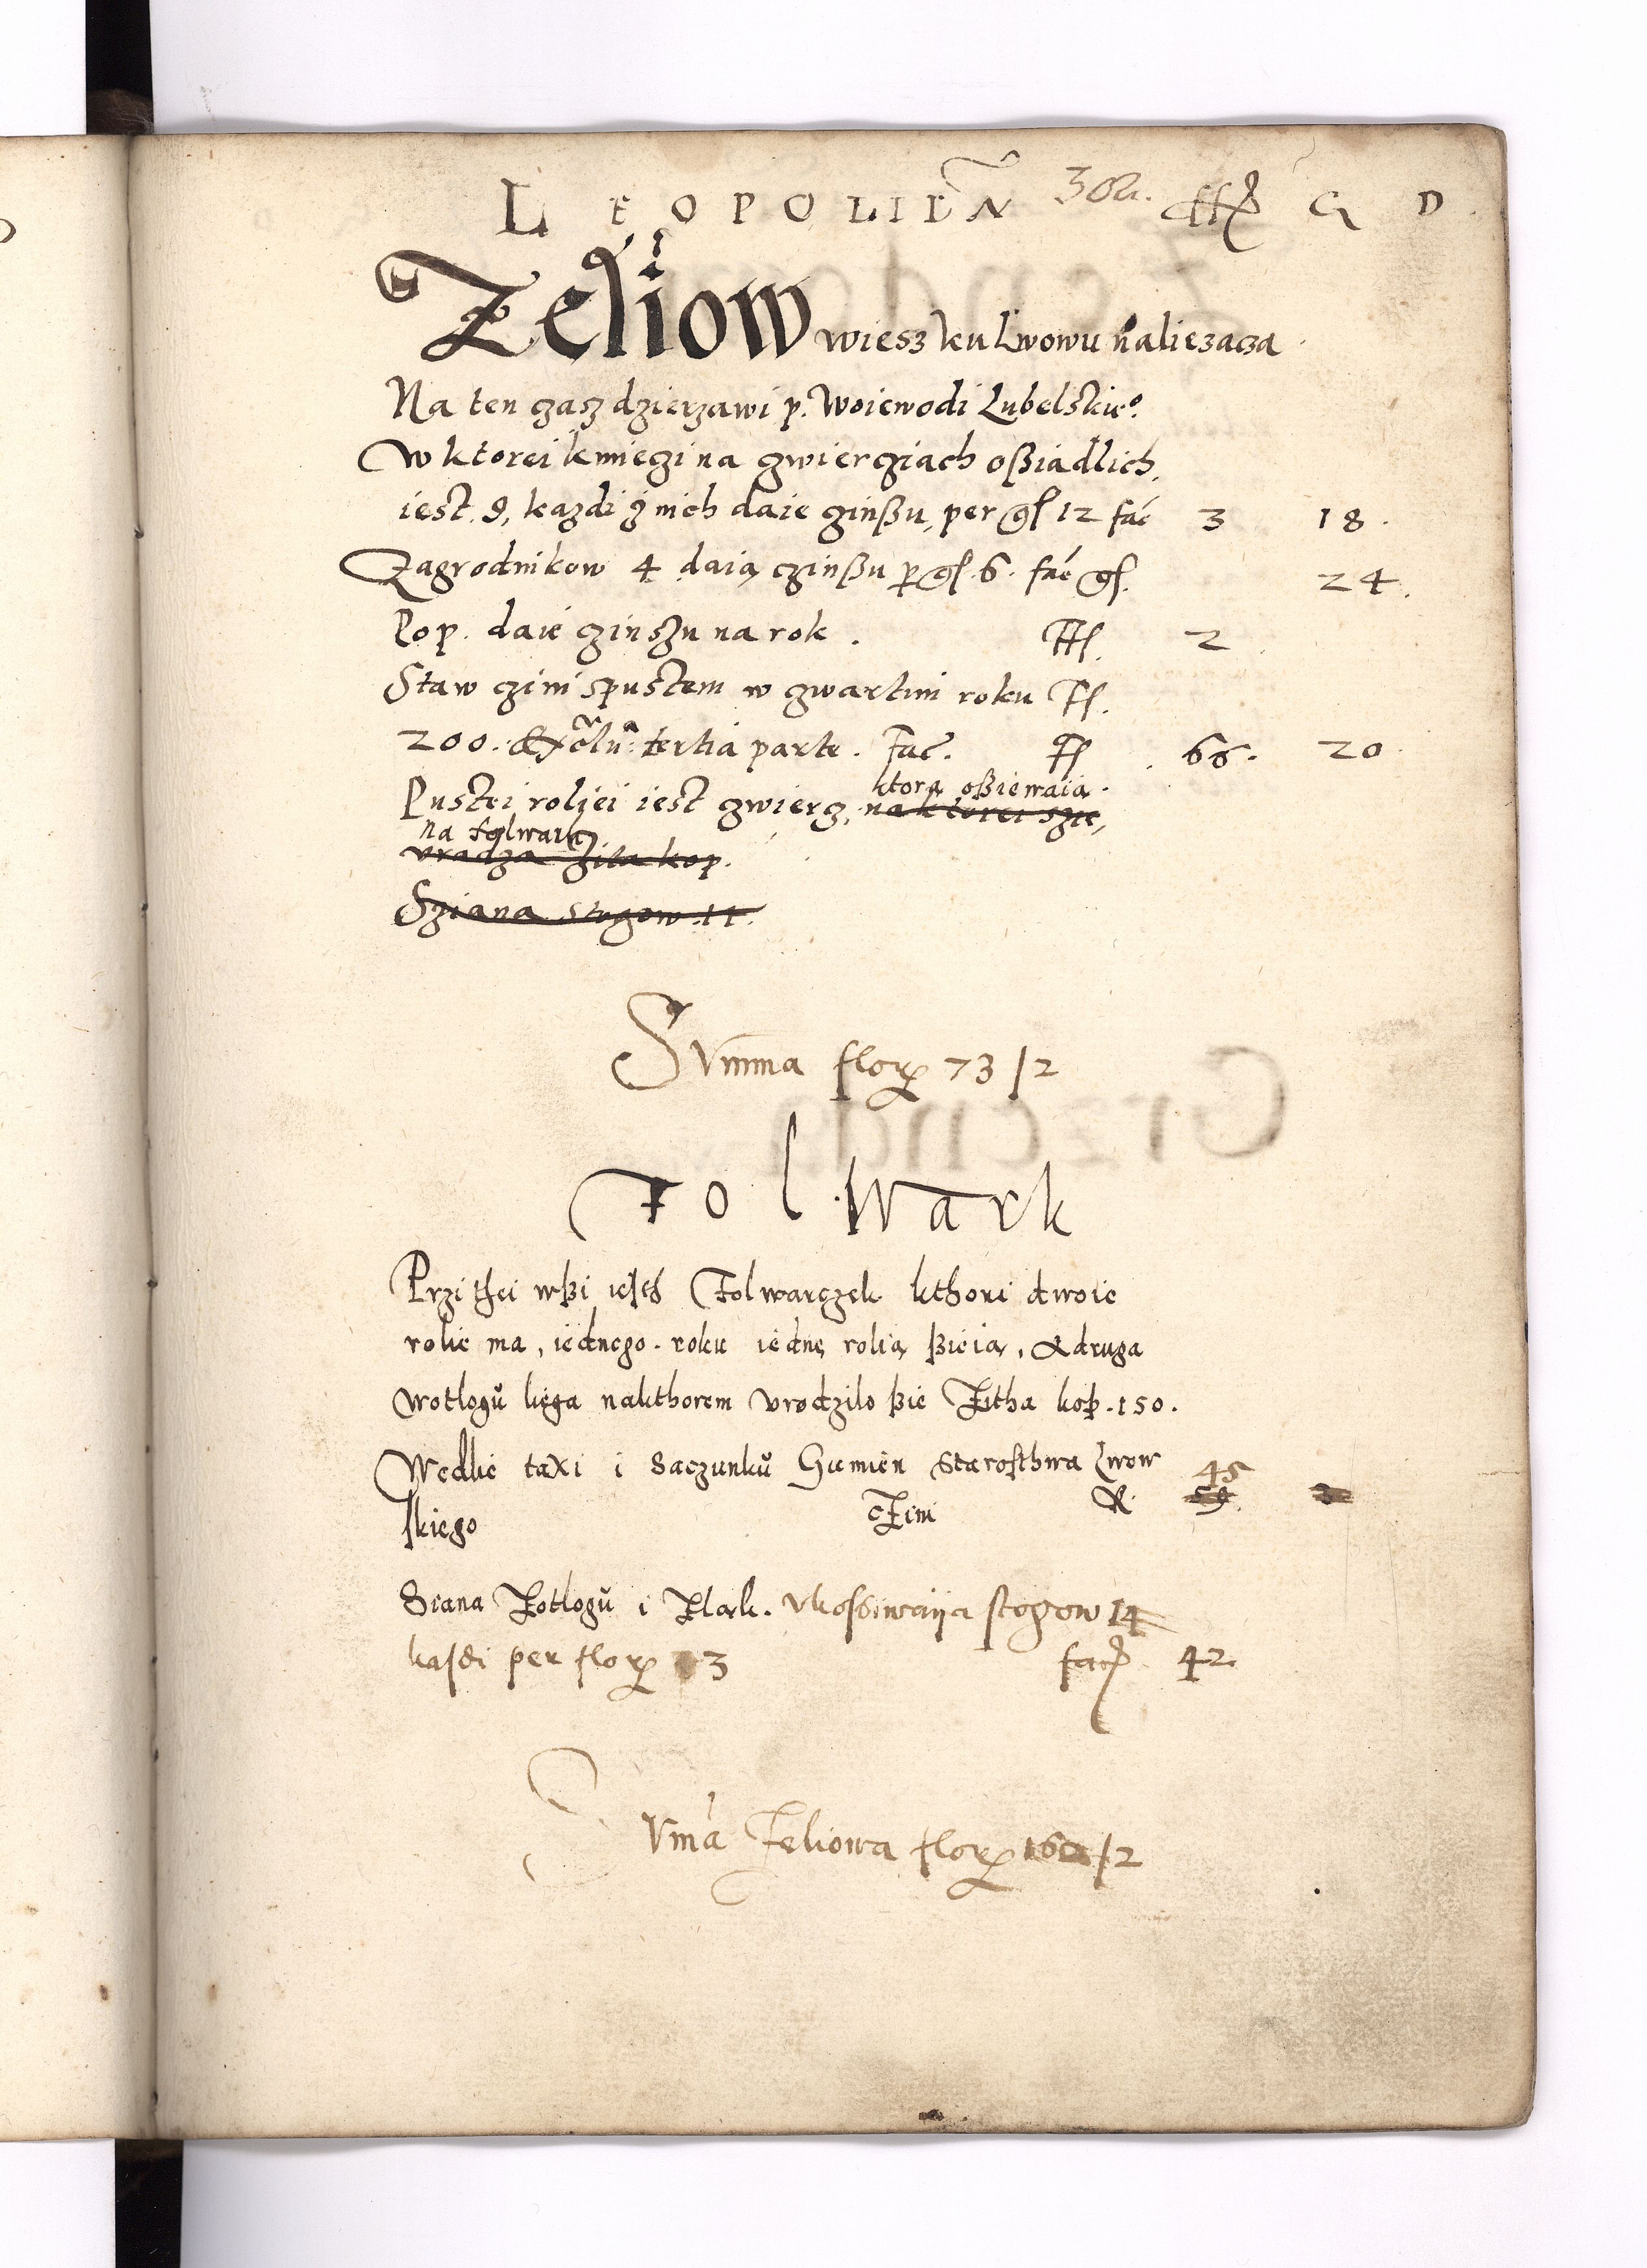 LEOPOLIEN̄ 302. ff G D
Zeliow wiesz ku Lwowu naliezacza
Na ten czasz dzierzawi p. Woiewodi Lubelskieº.
W ktorei kmieczi na czwiercziach ossiadlich,
iest. 9, kazdi z nich daie czinßu, per gſ 12 fac̄ 3 18.
Zagrodnikow 4 daią czinßu ꝑ gſ. 6. fac̄ gſ. 24.
Pop. daie czinszu na rok. ff. 2
Staw czini spustem w czwartim roku ff.
200. tertia parte. Fac̄. ff 66. 20
Pustei roliei iest czwiercz, na ktorei szie, ktorą oßiewaia.
na folwarcz
vradza zita kop.
Sziana stogow 11.
Summa florꝝ 73 /2
Folwark
Przi thei wßi iesth Folwarczek kthori dwoie
rolie ma, iednego. roku iednę rolią ßieią, a druga
wotlogu liega nakthorem vrodzilo ßie Zitha kop. 150.
Wedlie taxi i Saczunku Gumien Starosthwa Lwow 45
skiego cZini
Siana Zotlogu i Zlak. vkossiwaiia stogow 14
kasdi per florꝝ 3 fac 42
Summa Zeliowa florꝝ /2